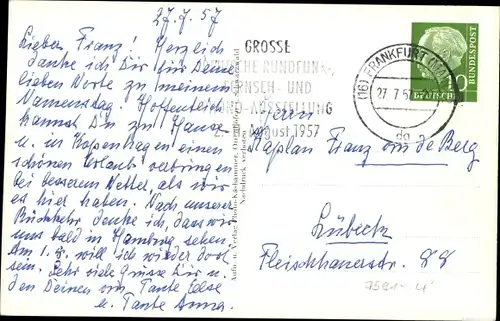 27.7.57
Lieber Franz! Herzlich
danke ich Dir für Deine
lieben Worte zu meinem
Namenstag! Hoffentlich
kannst Du zu Hause
u. in Kopenhagen einen
schönen Urlaub verbringen
bei besserem Wetter, als wir
es hier haben. Nach unserer
Rückkehr denke ich, dass wir
uns bald in Hamburg sehen.
Am 1.8. will ich wieder dort
sein. Sehr viele Grüsse Dir u.
den Deinen von Tante Else
u. Tante Anna.
GROSSE
DEUTSCHE RUNDFUNK-,
FERNSEH- UND
PHONO-AUSSTELLUNG
August 1957
(16) FRANKFURT (MAIN)
27.7.57
da
10
DEUTSCHE
BUNDESPOST
Herrn
Kaplan Franz von de Berg
Lübeck
Fleischhauerstr. 88
Nachdruck verboten